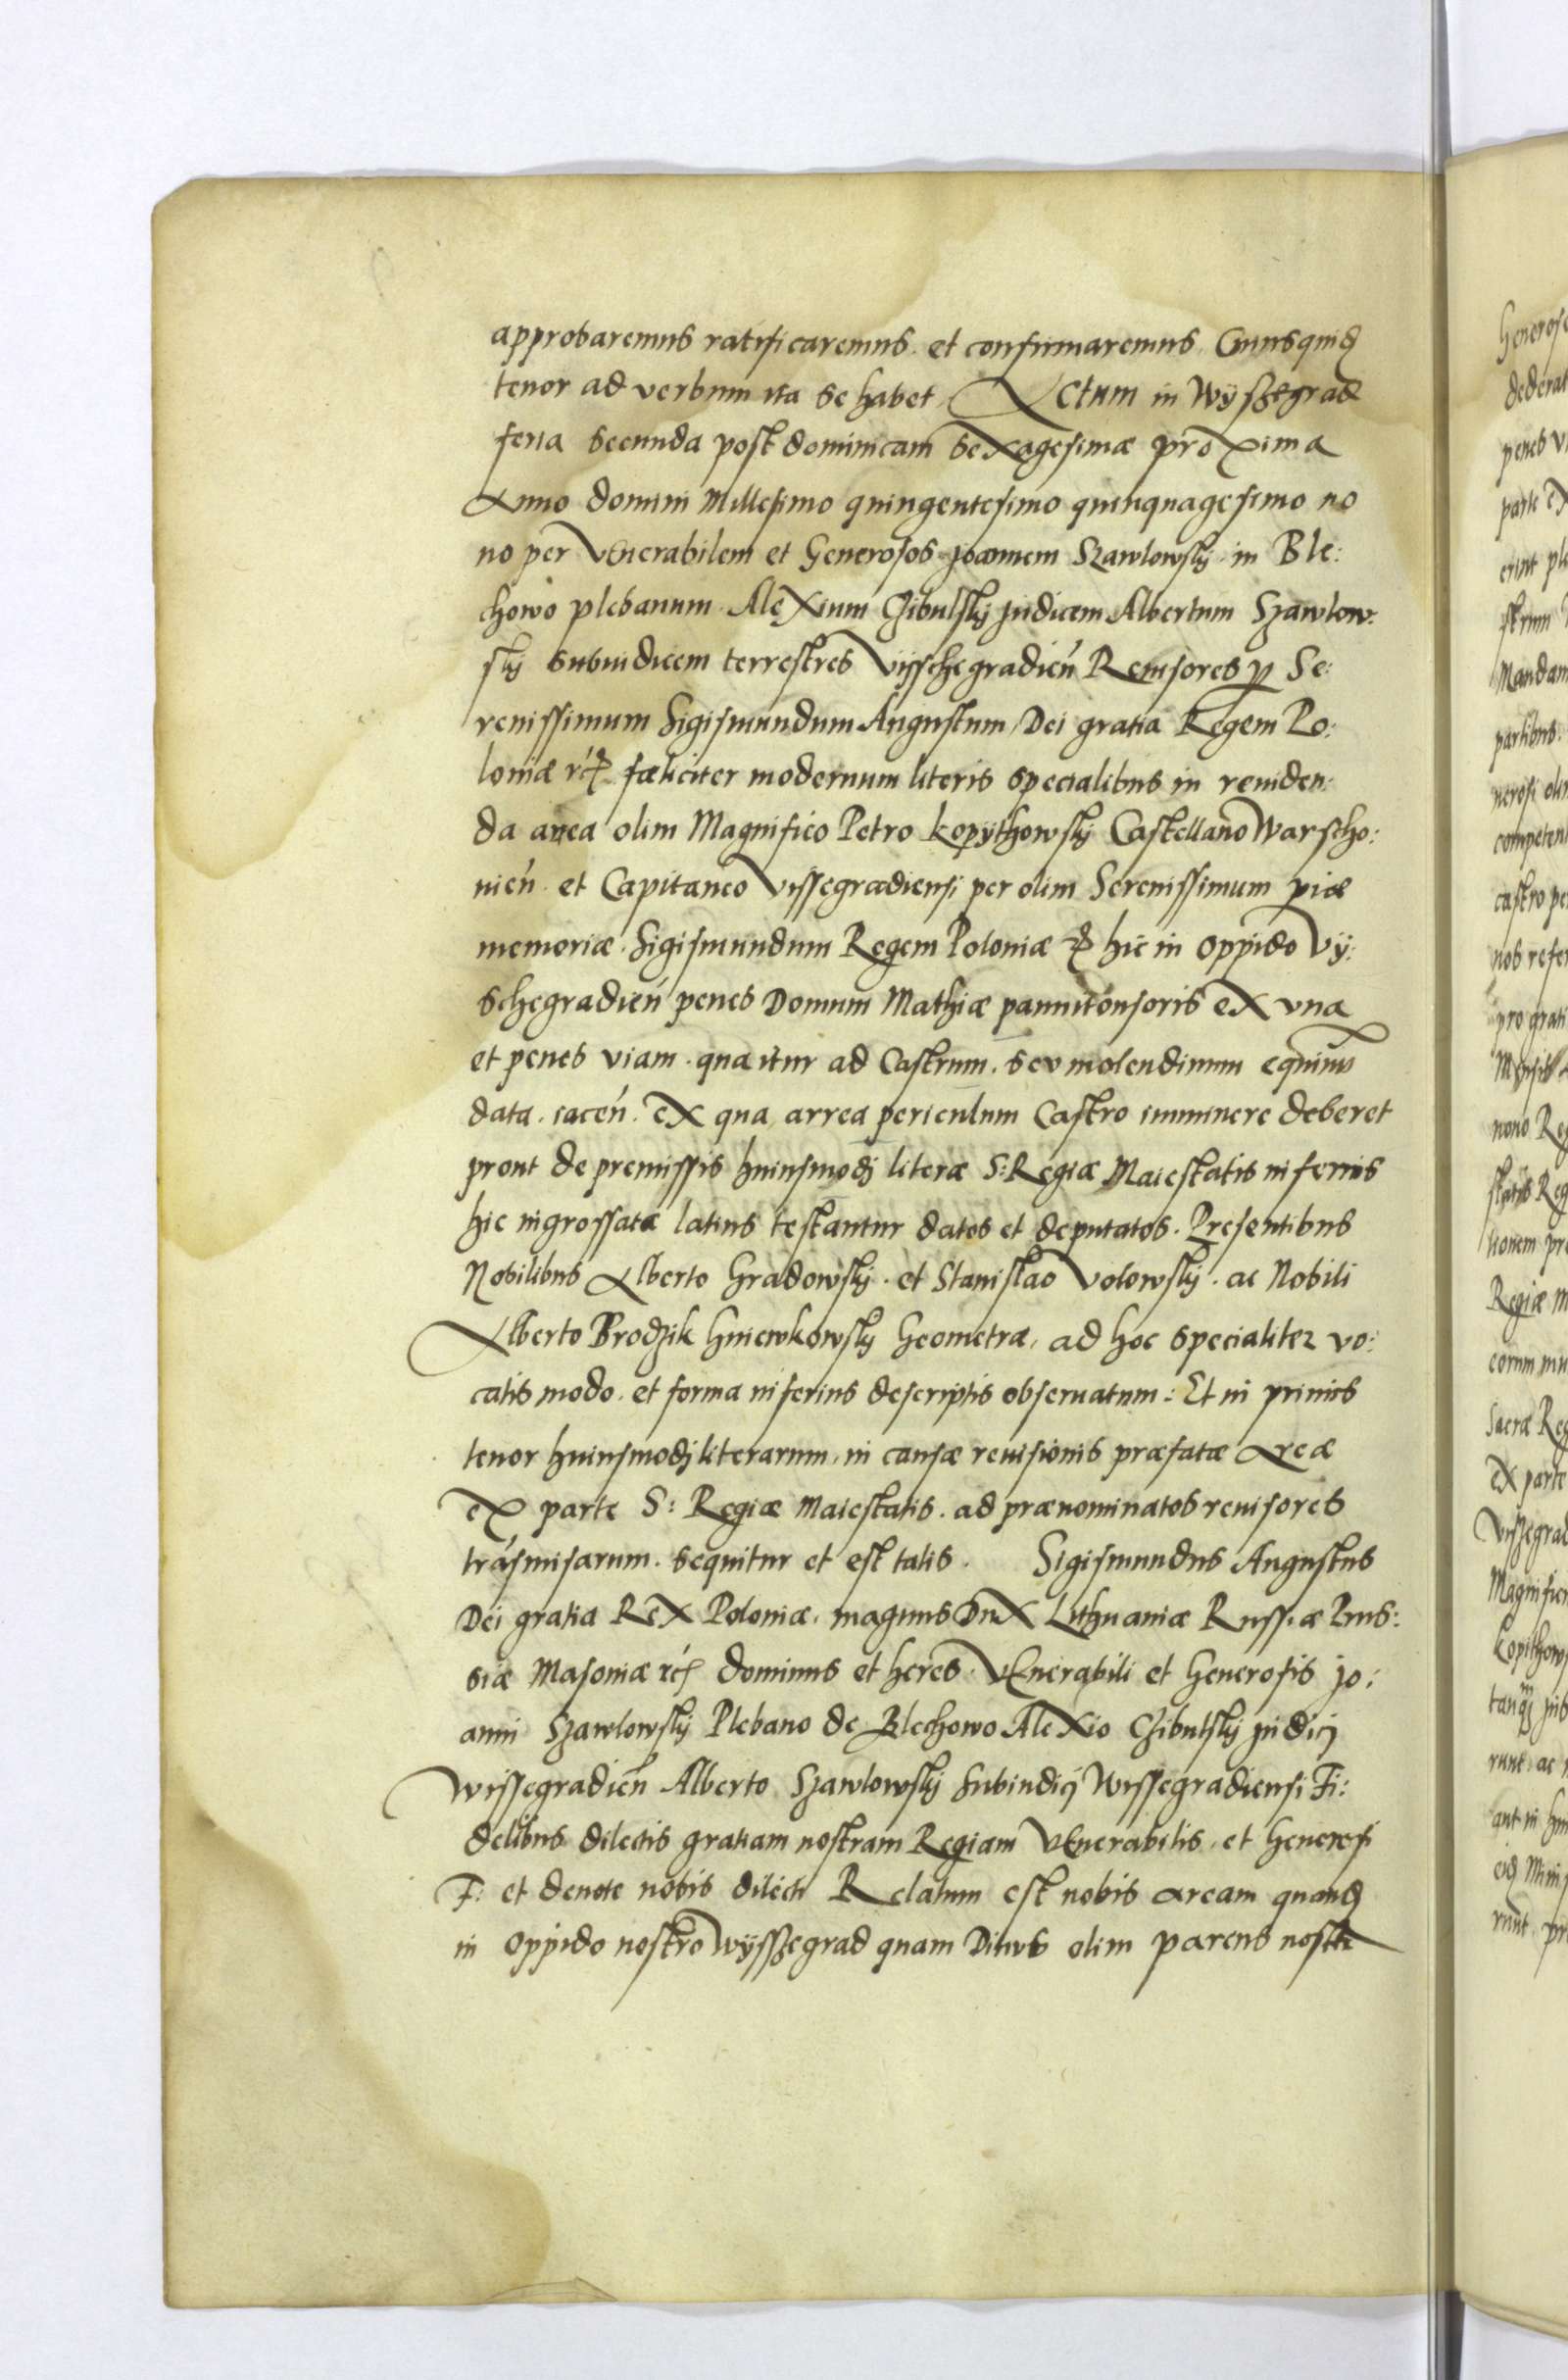 approbaremus ratificaremus. et confirmaremus. Cuiusquidẽ
tenor ad verbum ita se habet. Actum in Wÿszegrad
feria secunda post dominicam sexagesimæ proxima
Anno domini Millesimo quingentesimo quinquagesimo no
no per Venerabilem et Generosos joannem Szawlowskij in Ble:
chowo plebanum. Alexium Czibulskij judicem Albertum Szawlow:
skij subiudicem terrestres Vijschegradień Reuisores p Se:
renissimum Sigismundum Augustum Dei gratia Regem Po:
loniæ fæliciter modernum literis specialibus in reuiden:
da area olim Magnifico Petro kopÿthowskij Castellano Warscho:
nień. et Capitaneo Vissegradiensi per olim Serenissimum piæ
memoriæ. Sigismundum Regem Poloniæ hic in oppido Vÿ:
schegradień penes Domum Mathiæ pannitonsoris ex vna
et penes viam. qua itur ad Castrum. seu molendinum equinũ
data. iaceń. ex qua arrea periculum Castro imminere deberet
prout de premissis huiusmodj literæ S: Regiæ Maiestatis inferius
hic ingrossatæ latius testantur datos et deputatos. Presentibus
Nobilibus Alberto Gradowskij. et Stanislao Volowskij. ac Nobili
Alberto Brodzik Gniewkowskij Geometra, ad hoc specialiter vo:
catis modo. et forma inferius descriptis obseruatum: Et in primis
tenor huiusmodj literarum, in causæ reuisionis præfatæ Areæ
ex parte S: Regiæ Maiestatis. ad prænominatos reuisores
trãsmisarum. sequitur et est talis. Sigismundus Augustus
Dei gratia Rex Poloniæ. magnus Dux Lithuaniæ Russiæ Prus:
siæ Masoniæ dominus et heres. Venerabili et Generosis jo:
anni Szawlowskij Plebano de Blechowo Alexio Czibulskij judicj
Wissegradień Alberto Szawlowskij Subiudicj Wissegradiensi Fi:
delibus dilectis gratiam nostram Regiam Venerabilis. et Generosi
F: et deuote nobis dilecti Relatum est nobis aream quandã
in oppido nostro Wÿsszegrad quam Diuus olim parens noster